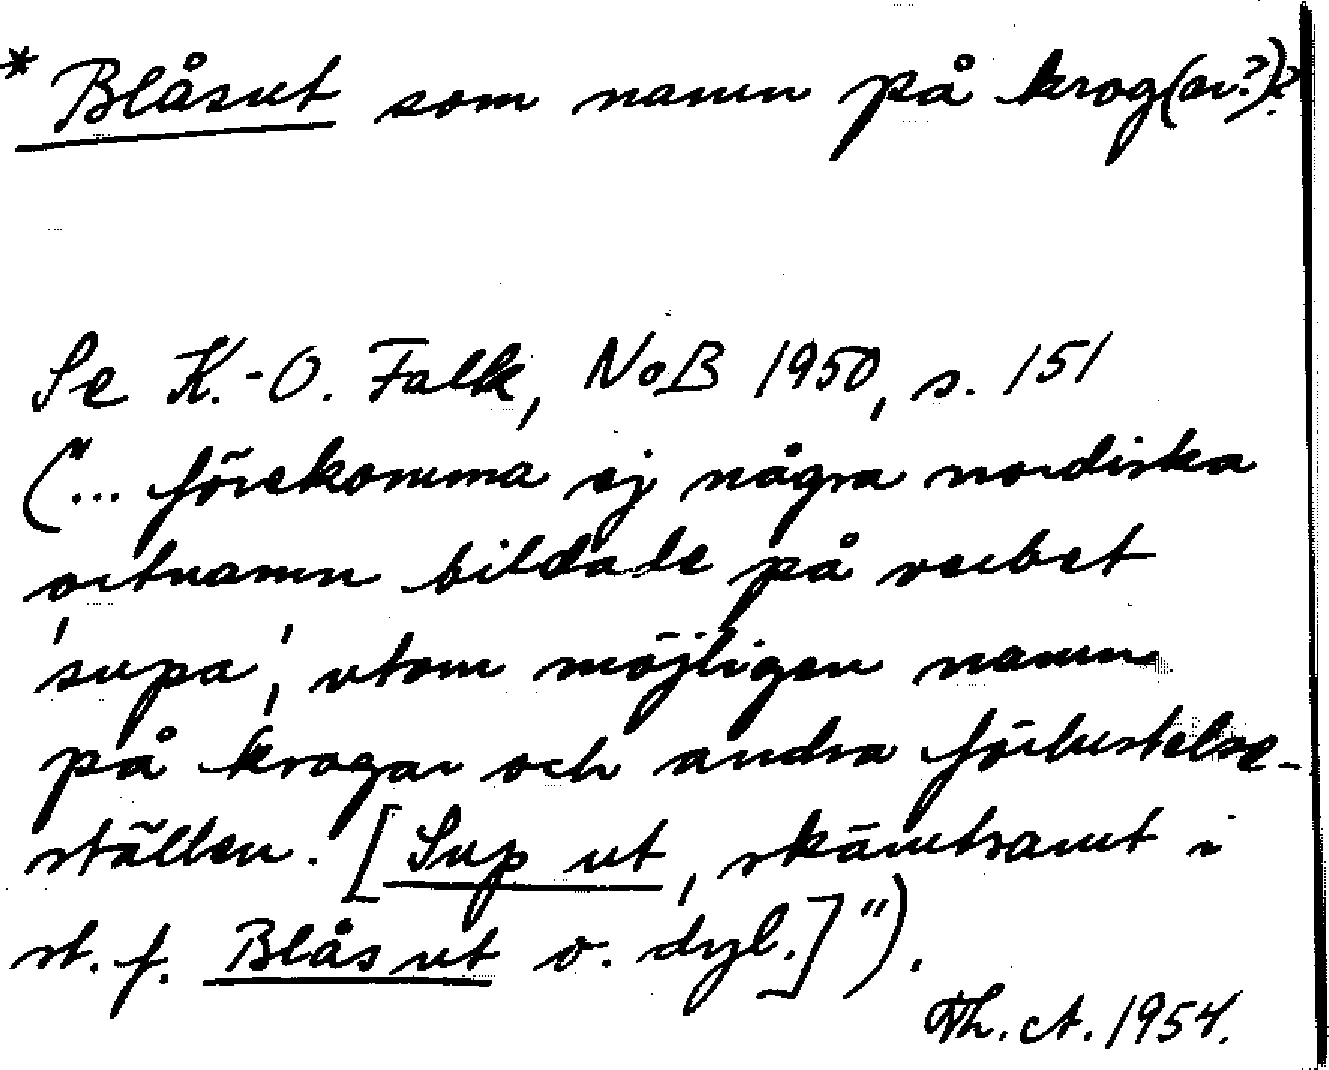 * Blåsut som namn på krog(ar?)?
Se K.-O. Falk, NoB 1950, s. 151
("... förekomma ej några nordiska
ortnamn bildade på verbet
'supa', utom möjligen namn
på krogar och andra förlustelse-
ställen. [Sup ut, skämtsamt i
st. f. Blås ut o. dyl.]").
Th. A. 1954.